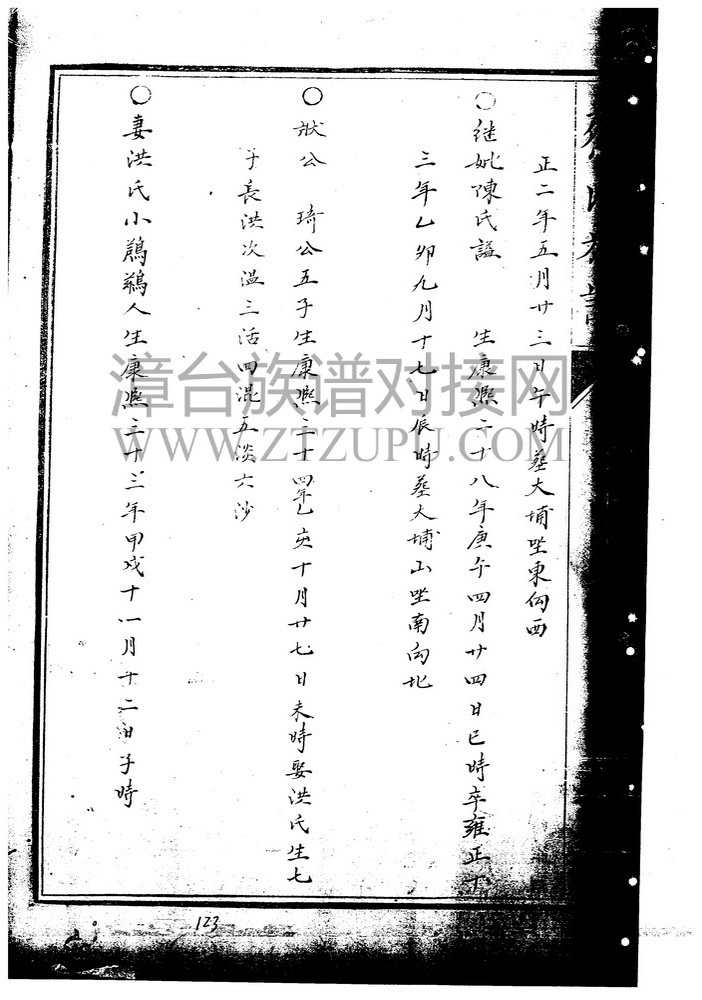 正二年五月廿三日午時葬大埔坐東向西
○继妣陳氏謚 生康熙二十八年庚午四月廿四日巳時卒雍正十
三年乙卯九月十七日辰時葬大埔山坐南向北
○狀公 琦公五子生康熙三十四年乙亥十月廿七日未時娶洪氏生七
子長洪次温三活四混五淡六沙
○妻洪氏小鷓鴣人生康熙三十三年甲戌十一月十二日子時
漳台族谱对接网
WWW.ZTZUPU.COM
123